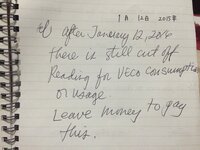 1月 12日 2015年
after January 12, 2016
there is still cut off
Reading for VECO consumption
or usage
Leave money to pay
this.